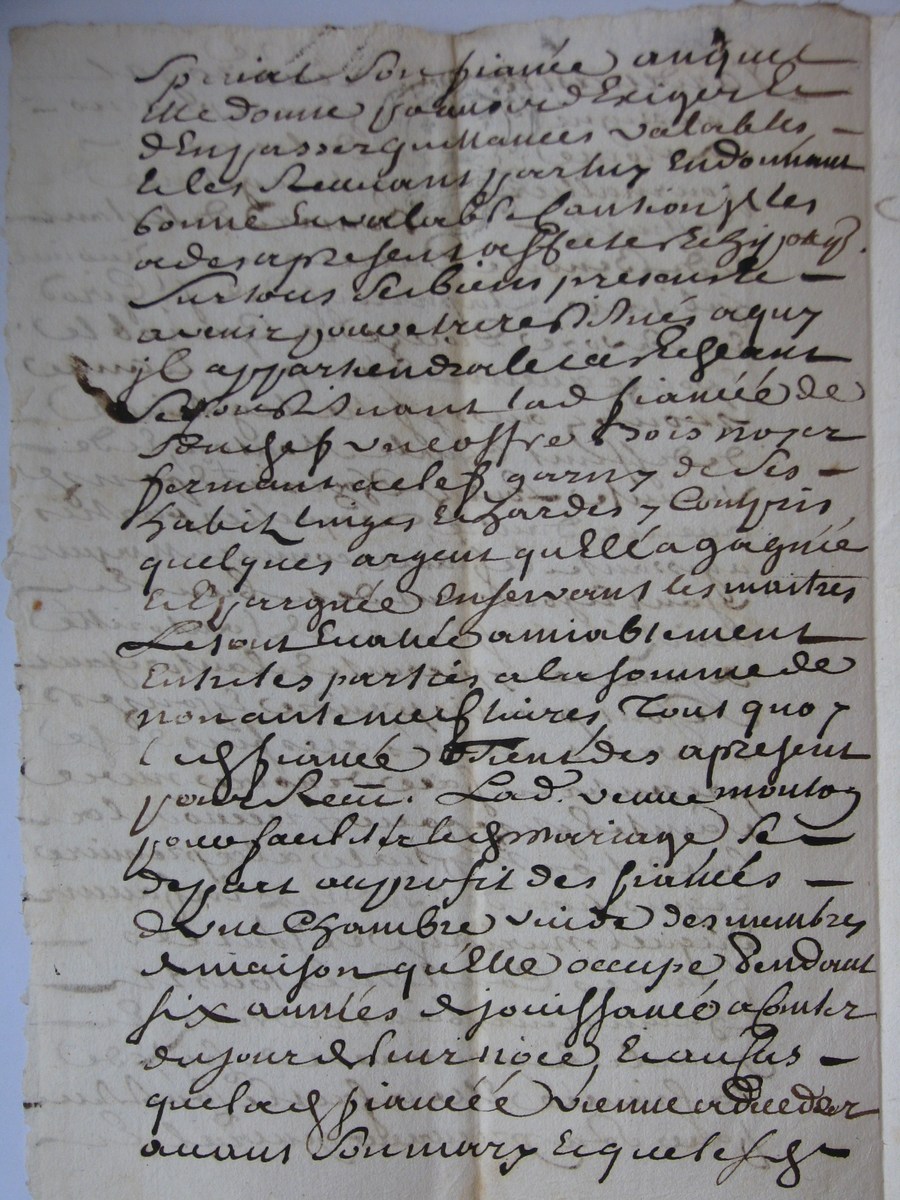 special son fiancé auquel
elle donne pouvoir d'exiger et
d'en passer quittances valables
et les recevant par luy en donnant
bonne et valable caution jl les
a des a present affecté et hypoqs.
sur tous ses biens presents et
avenir pour etre restitués a quy
jl appartiendra le cas echeant
se constituant lad fiancée de
son chef un coffre bois noyer
fermant a clef garny de ses
habitz linges et hardes y compris
quelques argent qu'elle a gagnée
et epargnée en servant les maitres
Le tout evalué amiablement
entre les parties a la somme de
nonante neuf livres, Tout quoy
led fiancé tient des a present
pour receu. Lad. veuve
pour faciliter led mariage se
depart au profit des fiancés
d'une chambre vuide des membres
de maison qu'elle occupe pendant
six années de jouissance a conter
du jour de leur noce, et au cas
que lad fiancée vienne a deceder
avant son mary et que led